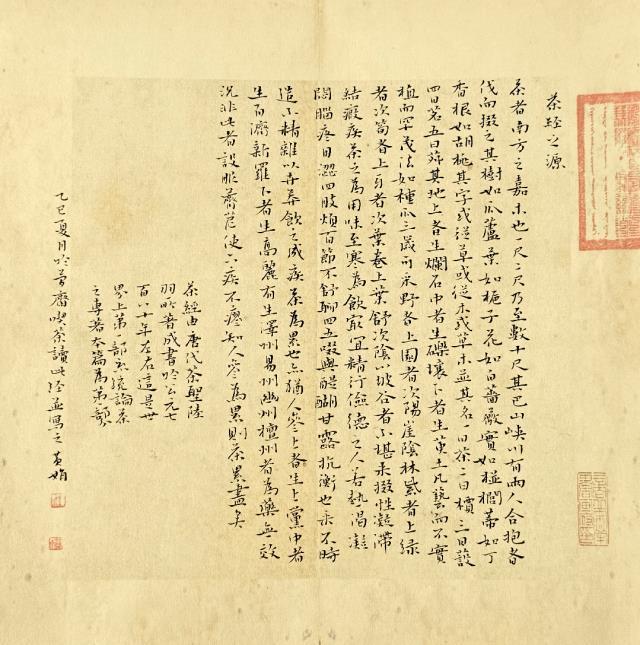 茶經之源
茶者南方之嘉木也一尺二尺乃至數十尺其巴山峽川有兩人合抱者
伐而掇之其樹如瓜蘆葉如梔子花如白薔薇實如栟櫚蒂如丁
香根如胡桃其字或從草或從木或草木並其名一曰茶二曰檟三曰蔎
四曰茗五曰荈其地上者生爛石中者生礫壤下者生黃土凡藝而不實
植而罕茂法如種瓜三歲可采野者上園者次陽崖陰林紫者上綠
者次筍者上牙者次葉卷上葉舒次陰山坡谷者不堪采掇性凝滯
結瘕疾茶之為用味至寒為飲最宜精行儉德之人若熱渴凝
悶腦疼目澀四肢煩百節不舒聊四五啜與醍醐甘露抗衡也采不時
造不精雜以卉莽飲之成疾茶為累也亦猶人參上者生上黨中者
生百濟新羅下者生高麗有生澤州易州幽州檀州者為藥無效
況非此者設服薺苨使六疾不瘳知人參為累則茶累盡矣
茶經由唐代茶聖陸
羽所著成書於公元七
百八十年左右這是世
界上第一部系統論茶
之專著本篇為第一部
乙巳夏月於芳齋喫茶讀此經並寫之 黃娟